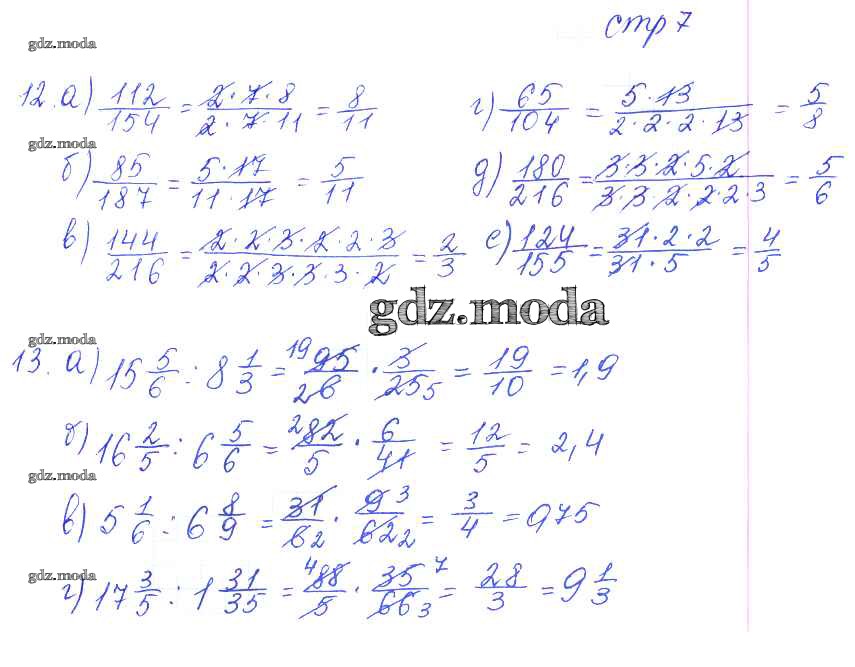 стр 7
gdz.moda
12. а) 112/154 = 2·7·8/2·7·11 = 8/11
г) 65/104 = 5·13/2·2·2·13 = 5/8
gdz.moda
б) 85/187 = 5·17/11·17 = 5/11
д) 180/216 = 3·3·2·5·2/3·3·2·2·2·3 = 5/6
в) 144/216 = 2·2·3·2·2·3/2·2·3·3·3·2 = 2/3
е) 124/155 = 31·2·2/31·5 = 4/5
gdz.moda
gdz.moda
13. а) 15 5/6 : 8 1/3 = 19 95/2 6 · 3/25 5 = 19/10 = 1,9
б) 16 2/5 : 6 5/6 = 2 82/5 · 6/41 = 12/5 = 2,4
gdz.moda
в) 5 1/6 : 6 8/9 = 31/6 2 · 9 3/62 2 = 3/4 = 0,75
gdz.moda
г) 17 3/5 : 1 31/35 = 4 88/5 · 35 7/66 3 = 28/3 = 9 1/3